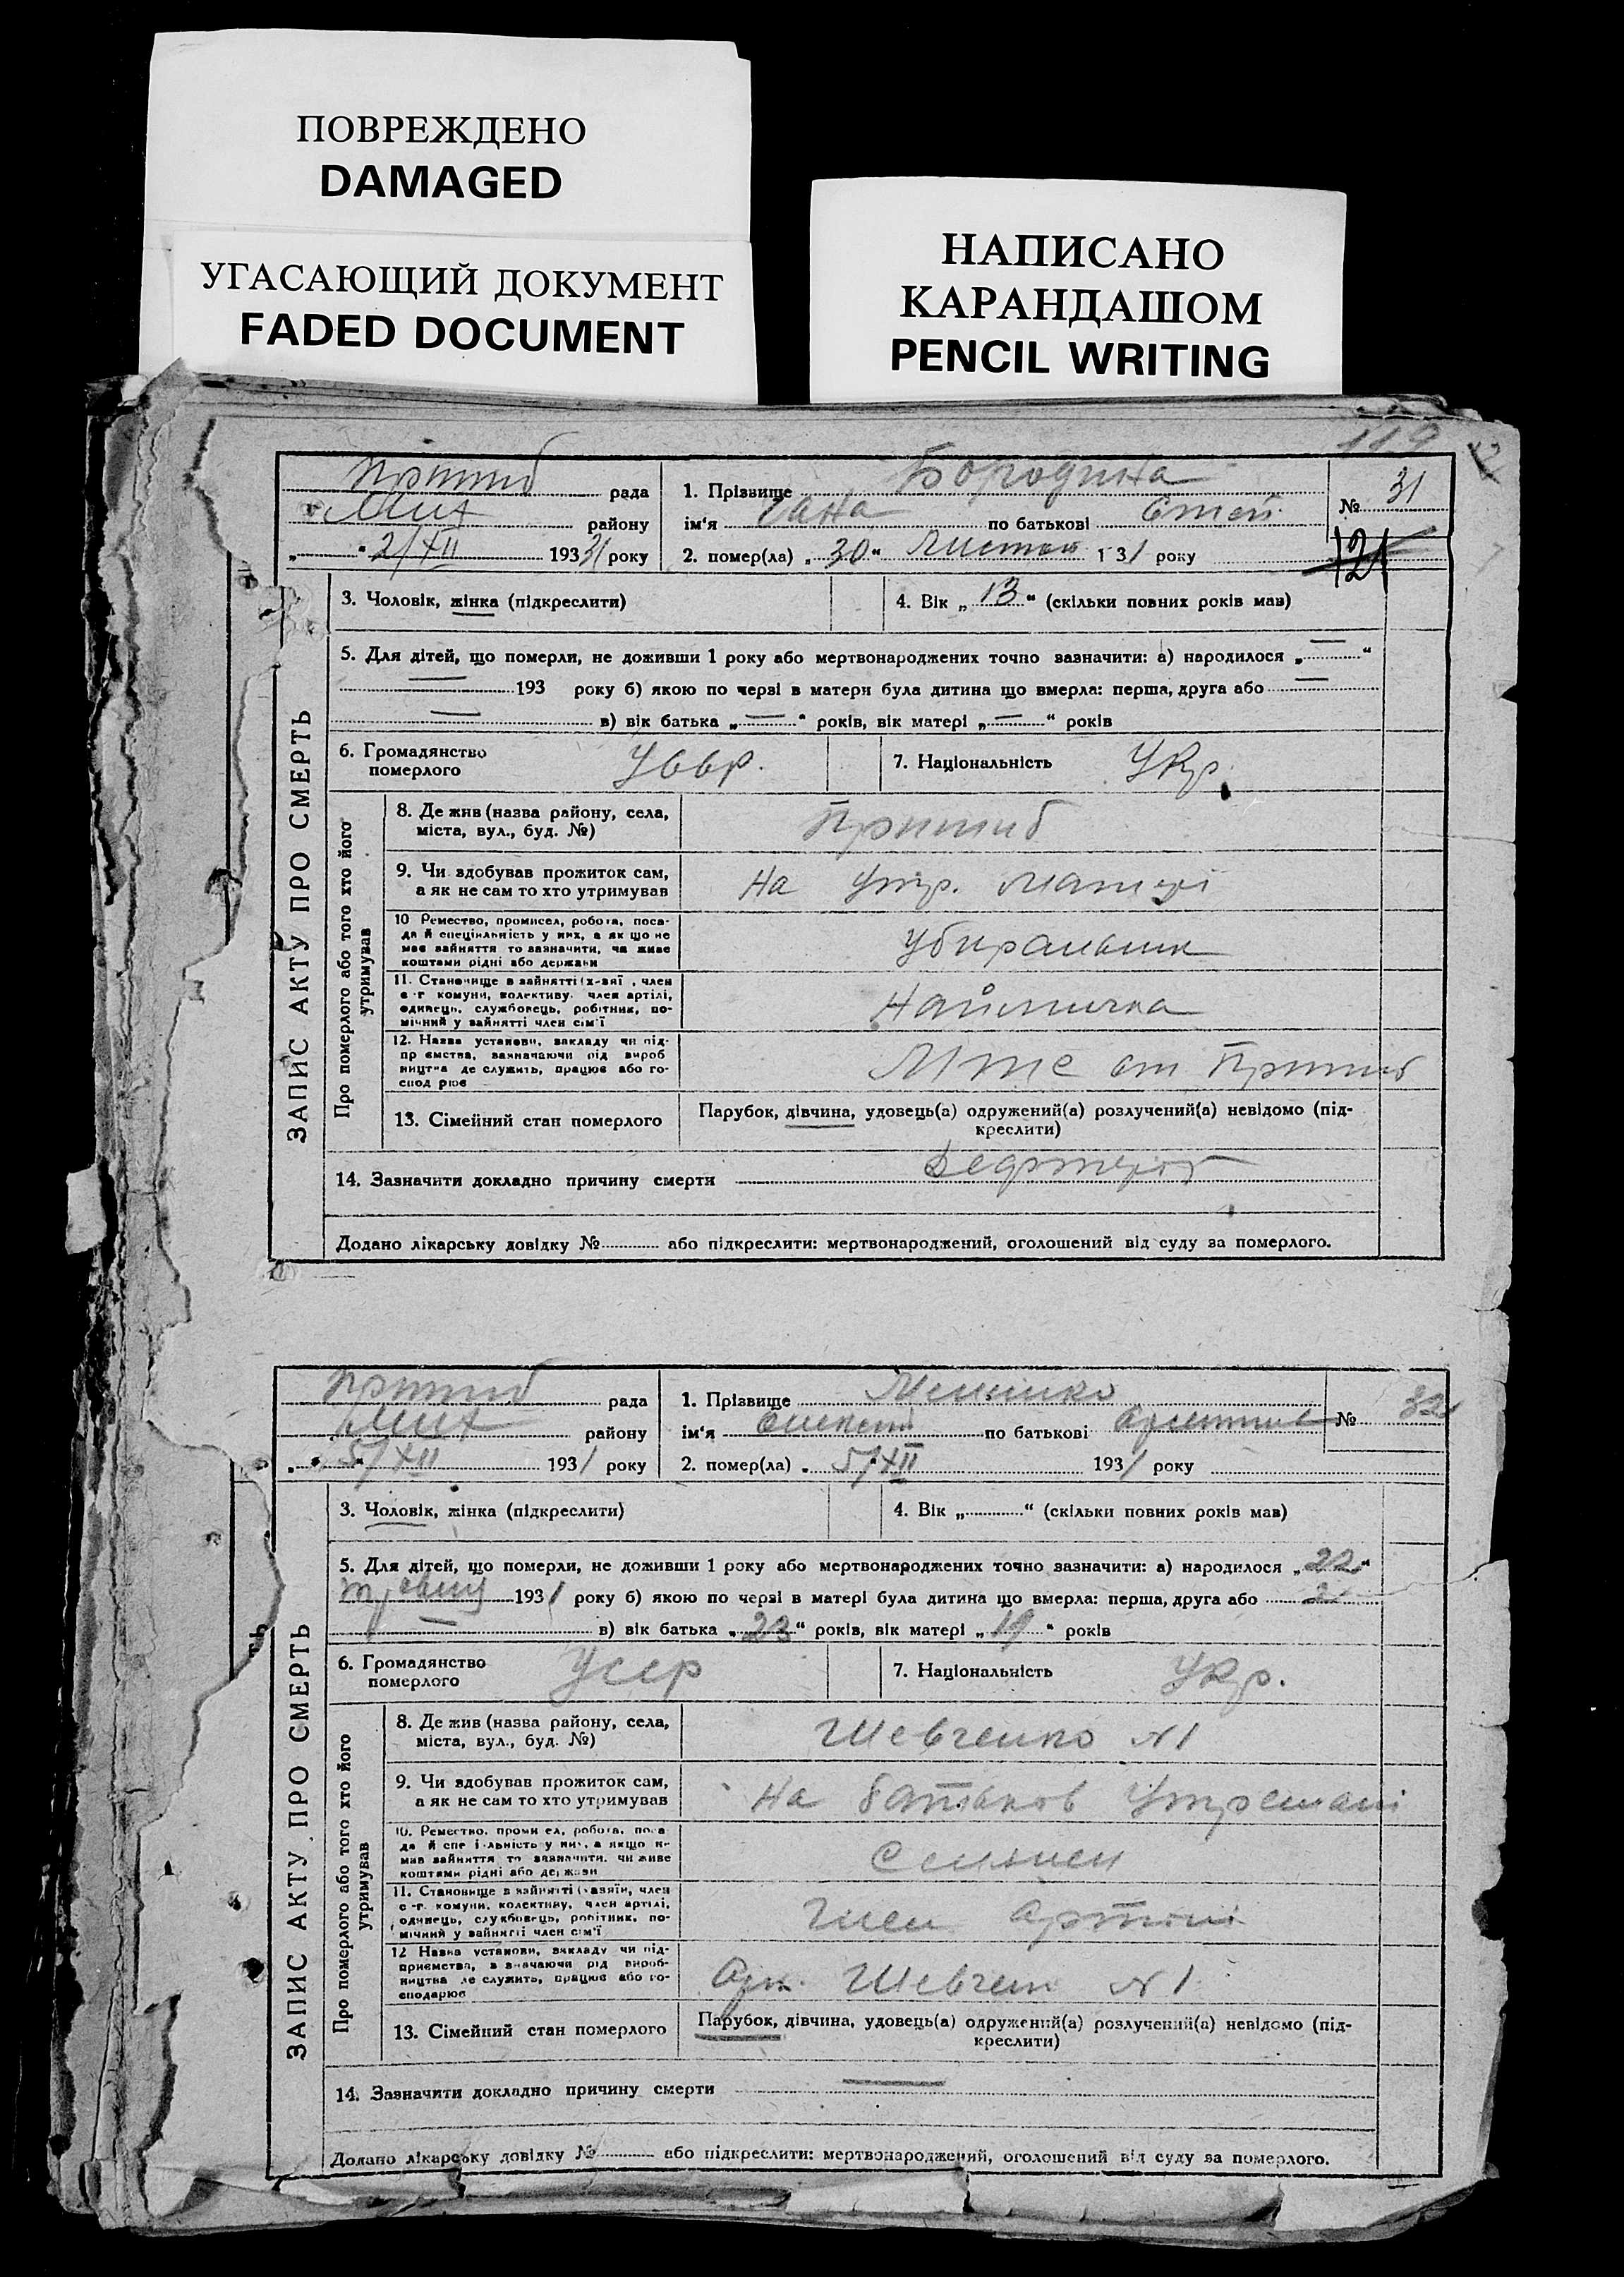 ПОВРЕЖДЕНО
DAMAGED
УГАСАЮЩИЙ ДОКУМЕНТ
FADED DOCUMENT
НАПИСАНО
КАРАНДАШОМ
PENCIL WRITING
119
ЗАПИС АКТУ ПРО СМЕРТЬ
Пришиб рада
Мих району
2/XII 1931 року
1. Прізвище Бородина
ім'я по батькові Степ
2. помер(ла) „30“ Листоп 131 року
№ 31
121
3. Чоловік, жінка (підкреслити)
4. Вік „13“ (скільки повних років мав)
5. Для дітей, що померли, не доживши 1 року або мертвонароджених точно зазначити: а) народилося „—“
— 193 року б) якою по черзі в матери була дитина що вмерла: перша, друга або —
— в) вік батька „—“ років, вік матері „—“ років
6. Громадянство
померлого
7. Національність Укр.
Про померлого або того хто його
утримував
8. Де жив (назва району, села,
міста, вул., буд. №)
Пришиб
9. Чи здобував прожиток сам,
а як не сам то хто утримував
На утр. матері
10 Ремество, промисел, робота, поса-
да й спеціяльність у них, а як що не
мав зайняття то зазначити, чи живе
коштами рідні або держави
11. Становище в зайнятті (х-зяї , член
с -г комуни, колективу, член артілі,
одинець, службовець, робітник, по-
мічний у зайнятті член сім'ї
Наймичка
12. Назва установи, закладу чи під-
пр ємства, зазначаючи під вироб
ництва де служить, працює або го-
спод рює
МТС Пришиб
13. Сімейний стан померлого
Парубок, дівчина, удовець(а) одружений(а) розлучений(а) невідомо (під-
креслити)
14. Зазначити докладно причину смерти
Додано лікарську довідку № або підкреслити: мертвонароджений, оголошений від суду за померлого.
ЗАПИС АКТУ ПРО СМЕРТЬ
Пришиб рада
Мих району
5/XII 1931 року
1. Прізвище
ім'я Олексій по батькові
2. помер(ла) 5/XII 1931 року
№ 32
3. Чоловік, жінка (підкреслити)
4. Вік „ “ (скільки повних років мав)
5. Для дітей, що померли, не доживши 1 року або мертвонароджених точно зазначити: а) народилося „22“
травня 1931 року б) якою по черзі в матері була дитина що вмерла: перша, друга або 2
— в) вік батька „23“ років, вік матері „19“ років
6. Громадянство
померлого
УССР
7. Національність Укр.
Про померлого або того хто його
утримував
8. Де жив (назва району, села,
міста, вул., буд. №)
Шевченко №1
9. Чи здобував прожиток сам,
а як не сам то хто утримував
На батьков утремані
10. Ремество, проми ел, робота, поса-
да й спе і льність у них, а якщо н-
мав зайняття то зазначити, чи живе
коштами рідні або держави
11. Становище в зайнятті (хазяїн, член
с -г. комуни, колективу, член артілі,
одинець, службовець, робітник, по-
мічний у зайнятті член сім'ї
Член Артілі
12 Назва установи, закладу чи під-
приємства, з значаючи рід вироб-
ництва де служить, працює або го-
сподарює
Арт. Шевчен №1
13. Сімейний стан померлого
Парубок, дівчина, удовець(а) одружений(а) розлучений(а) невідомо (під-
креслити)
14. Зазначити докладно причину смерти —
Додано лікарську довідку № або підкреслити: мертвонароджений, оголошений від суду за померлого.